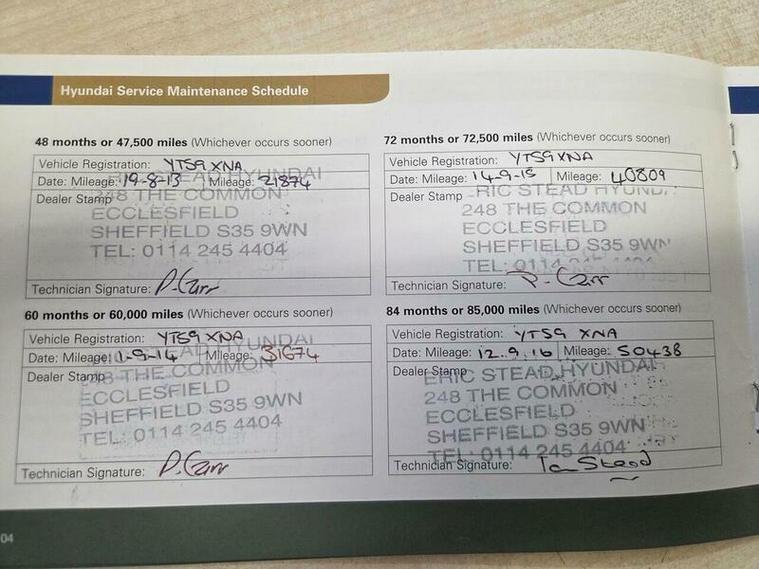 Hyundai Service Maintenance Schedule
48 months or 47,500 miles (Whichever occurs sooner)
Vehicle Registration: YT59 XNA
Date: Mileage: 19-8-13 Mileage: 21874
Dealer Stamp
ERIC STEAD HYUNDAI
248 THE COMMON
ECCLESFIELD
SHEFFIELD S35 9WN
TEL: 0114 245 4404
Technician Signature: P. Carr
60 months or 60,000 miles (Whichever occurs sooner)
Vehicle Registration: YT59 XNA
Date: Mileage: 1-9-14 Mileage: 31674
Dealer Stamp
HYUNDAI
248 THE COMMON
ECCLESFIELD
SHEFFIELD S35 9WN
TEL: 0114 245 4404
Technician Signature: P. Carr
72 months or 72,500 miles (Whichever occurs sooner)
Vehicle Registration: YT59 XNA
Date: Mileage: 14-9-15 Mileage: 40809
Dealer Stamp
ERIC STEAD HYUNDAI
248 THE COMMON
ECCLESFIELD
SHEFFIELD S35 9WN
TEL: 0114
Technician Signature: P. Carr
84 months or 85,000 miles (Whichever occurs sooner)
Vehicle Registration: YT59 XNA
Date: Mileage: 12.9.16 Mileage: 50438
Dealer Stamp
ERIC STEAD HYUNDAI
248 THE COMMON
ECCLESFIELD
SHEFFIELD S35 9WN
TEL: 0114 245 4404
Technician Signature: Ian Stead
04